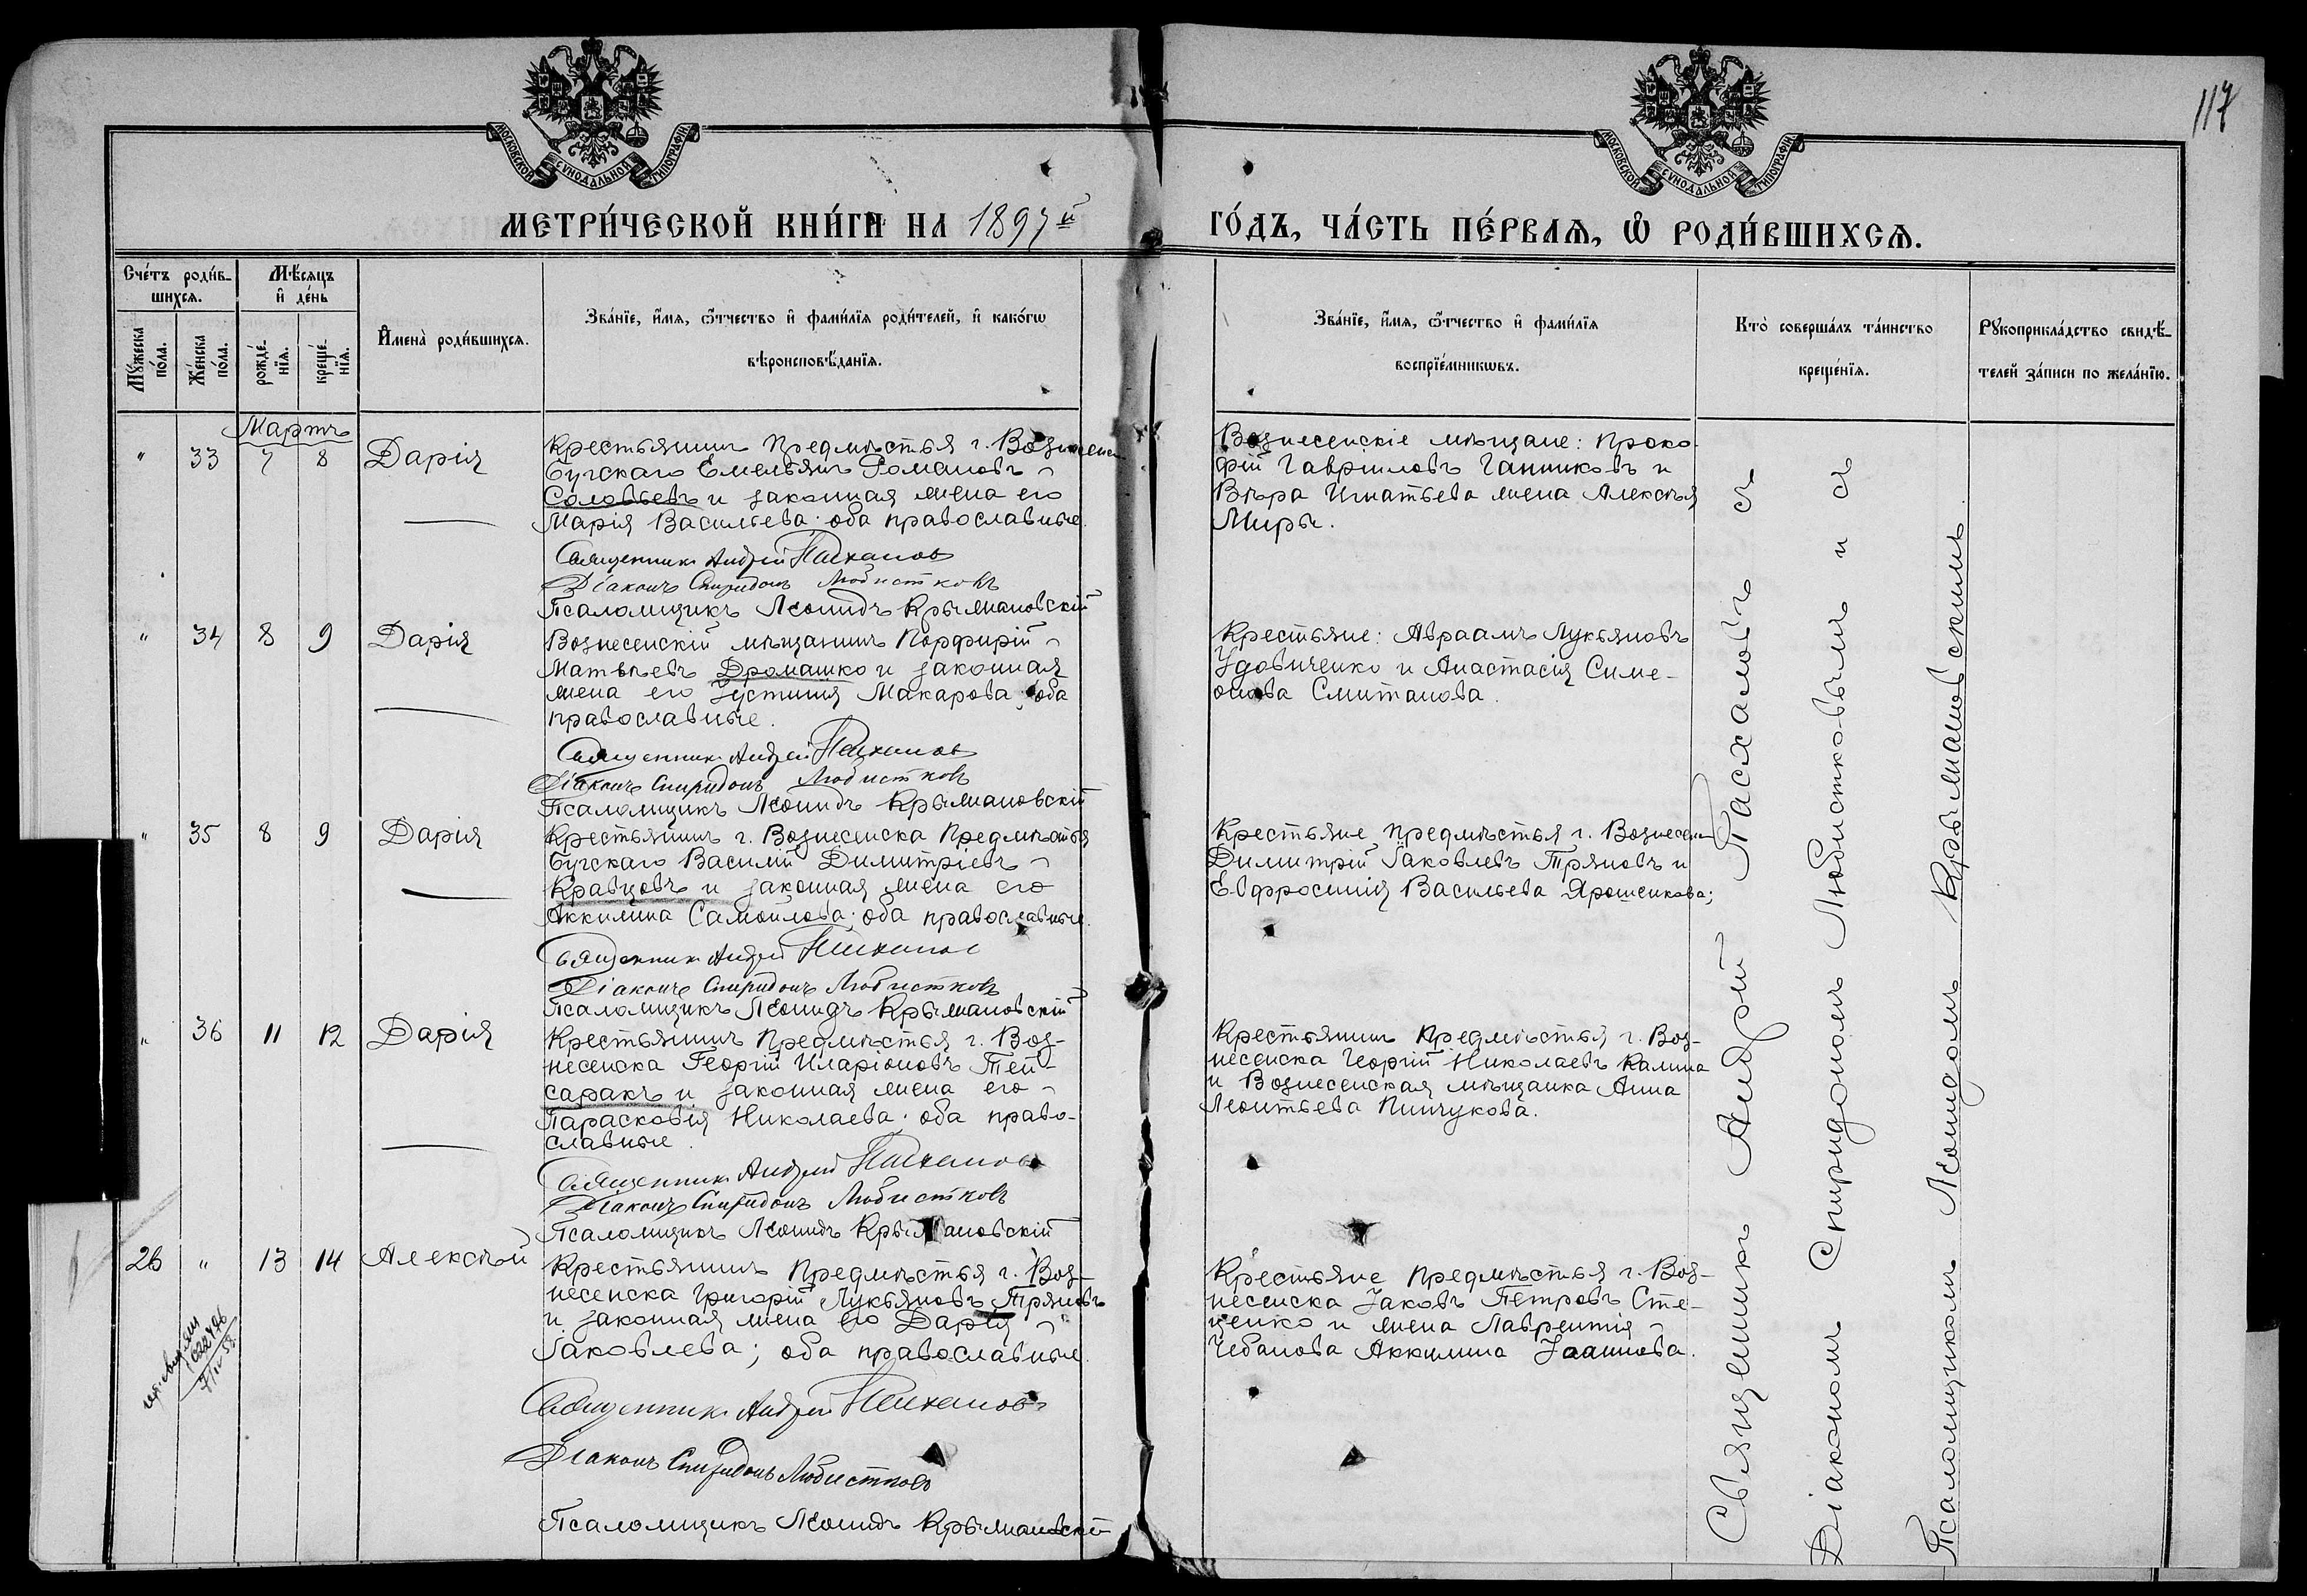 117
МОСКОВСКОЙ СѴНОДАЛЬНОЙ ТИПОГРАФІИ
МОСКОВСКОЙ СѴНОДАЛЬНОЙ ТИПОГРАФІИ
МЕТРИ́ЧЕСКОЙ КНИ́ГИ НА 1897й ГО́ДЪ, ЧА́СТЬ ПЕ́РВАѦ, Ѡ҆ РОДИ́ВШИХСѦ.
Сче́тъ роди́в-
шихсѧ.
Мѣ́сѧцъ
и҆ де́нь
Мꙋ́жеска по́ла.
Же́нска по́ла.
рожде́-
нїѧ.
креще́-
нїѧ.
И҆мена̀ роди́вшихсѧ.
Зва́нїе, и҆́мѧ, ѻ҆́тчество и҆ фами́лїѧ роди́телей, и҆ како́гѡ
вѣроисповѣ́данїѧ.
Зва́нїе, и҆́мѧ, ѻ҆́тчество и҆ фами́лїѧ
воспрїе́мникѡвъ.
Кто̀ соверша́лъ та́инство
креще́нїѧ.
Рꙋкоприкла́дство свидѣ́-
телей за́писи по жела́нїю.
Мартъ
" 33 7 8 Дарія
Крестьянинъ Предмѣстья г. Вознесен
Бугскаго Емельянъ Романовъ
Соловьевъ и законная жена его
Марія Васильева; оба православные.
Священникъ Андрей Пасхаловъ
Діаконъ Спиридонъ Любистковъ
Псаломщикъ Леонидъ Крыжановскій
Вознесенскіе мѣщане: Проко-
фій Гавріиловъ Ганниковъ и
Вѣра Игнатьева жена Алексѣя
Миры.
" 34 8 9 Дарія
Вознесенскій мѣщанинъ Порфирій
Матвѣевъ Дромашко и законная
жена его Іустинія Макарова; оба
православные.
Священникъ Андрей Пасхаловъ
Діаконъ Спиридонъ Любистковъ
Псаломщикъ Леонидъ Крыжановскій
Крестьяне: Авраамъ Лукьяновъ
Удовиченко и Анастасія Симе-
онова Смитанова.
" 35 8 9 Дарія
Крестьянинъ г. Вознесенска Предмѣстья
Бугскаго Василій Димитріевъ
Кравцовъ и законная жена его
Аккилина Самойлова; оба православные.
Священникъ Андрей Пасхаловъ
Діаконъ Спиридонъ Любистковъ
Псаломщикъ Леонидъ Крыжановскій
Крестьяне предмѣстья г. Вознесен
Димитрій Іаковлевъ Тряновъ и
Евфросинія Васильева Ярошенкова;
" 36 11 12 Дарія
Крестьянинъ Предмѣстья г. Воз-
несенска Георгій Иларіоновъ Тей-
саракъ и законная жена его
Парасковія Николаева; оба право-
славные.
Священникъ Андрей Пасхаловъ
Діаконъ Спиридонъ Любистковъ
Псаломщикъ Леонидъ Крыжановскій
Крестьянинъ Предмѣстья г. Воз-
несенска Георгій Николаевъ Калина
и Вознесенская мѣщанка Анна
Леонтьева Пинчукова.
26 " 13 14 Алексѣй
Крестьянинъ Предмѣстья г. Воз-
несенска Григорій Лукьяновъ Тряновъ
и законная жена его Дарія
Іаковлева; оба православные.
Священникъ Андрей Пасхаловъ
Діаконъ Спиридонъ Любистковъ
Псаломщикъ Леонидъ Крыжановскій
Крестьяне Предмѣстья г. Воз-
несенска Іаковъ Петровъ Сте-
ценко и жена Лаврентія
Чебанова Аккилина Іоаннова.
Священникъ Андрей Пасхаловъ съ
Діакономъ Спиридономъ Любистковымъ и съ
Псаломщикомъ Леонидомъ Крыжановскимъ